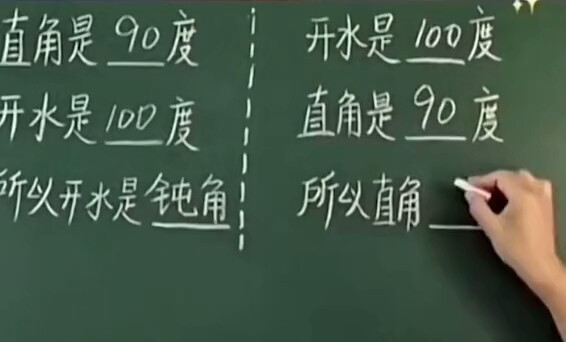 直角是 90 度
开水是 100 度
所以开水是 钝角
开水是 100 度
直角是 90 度
所以直角